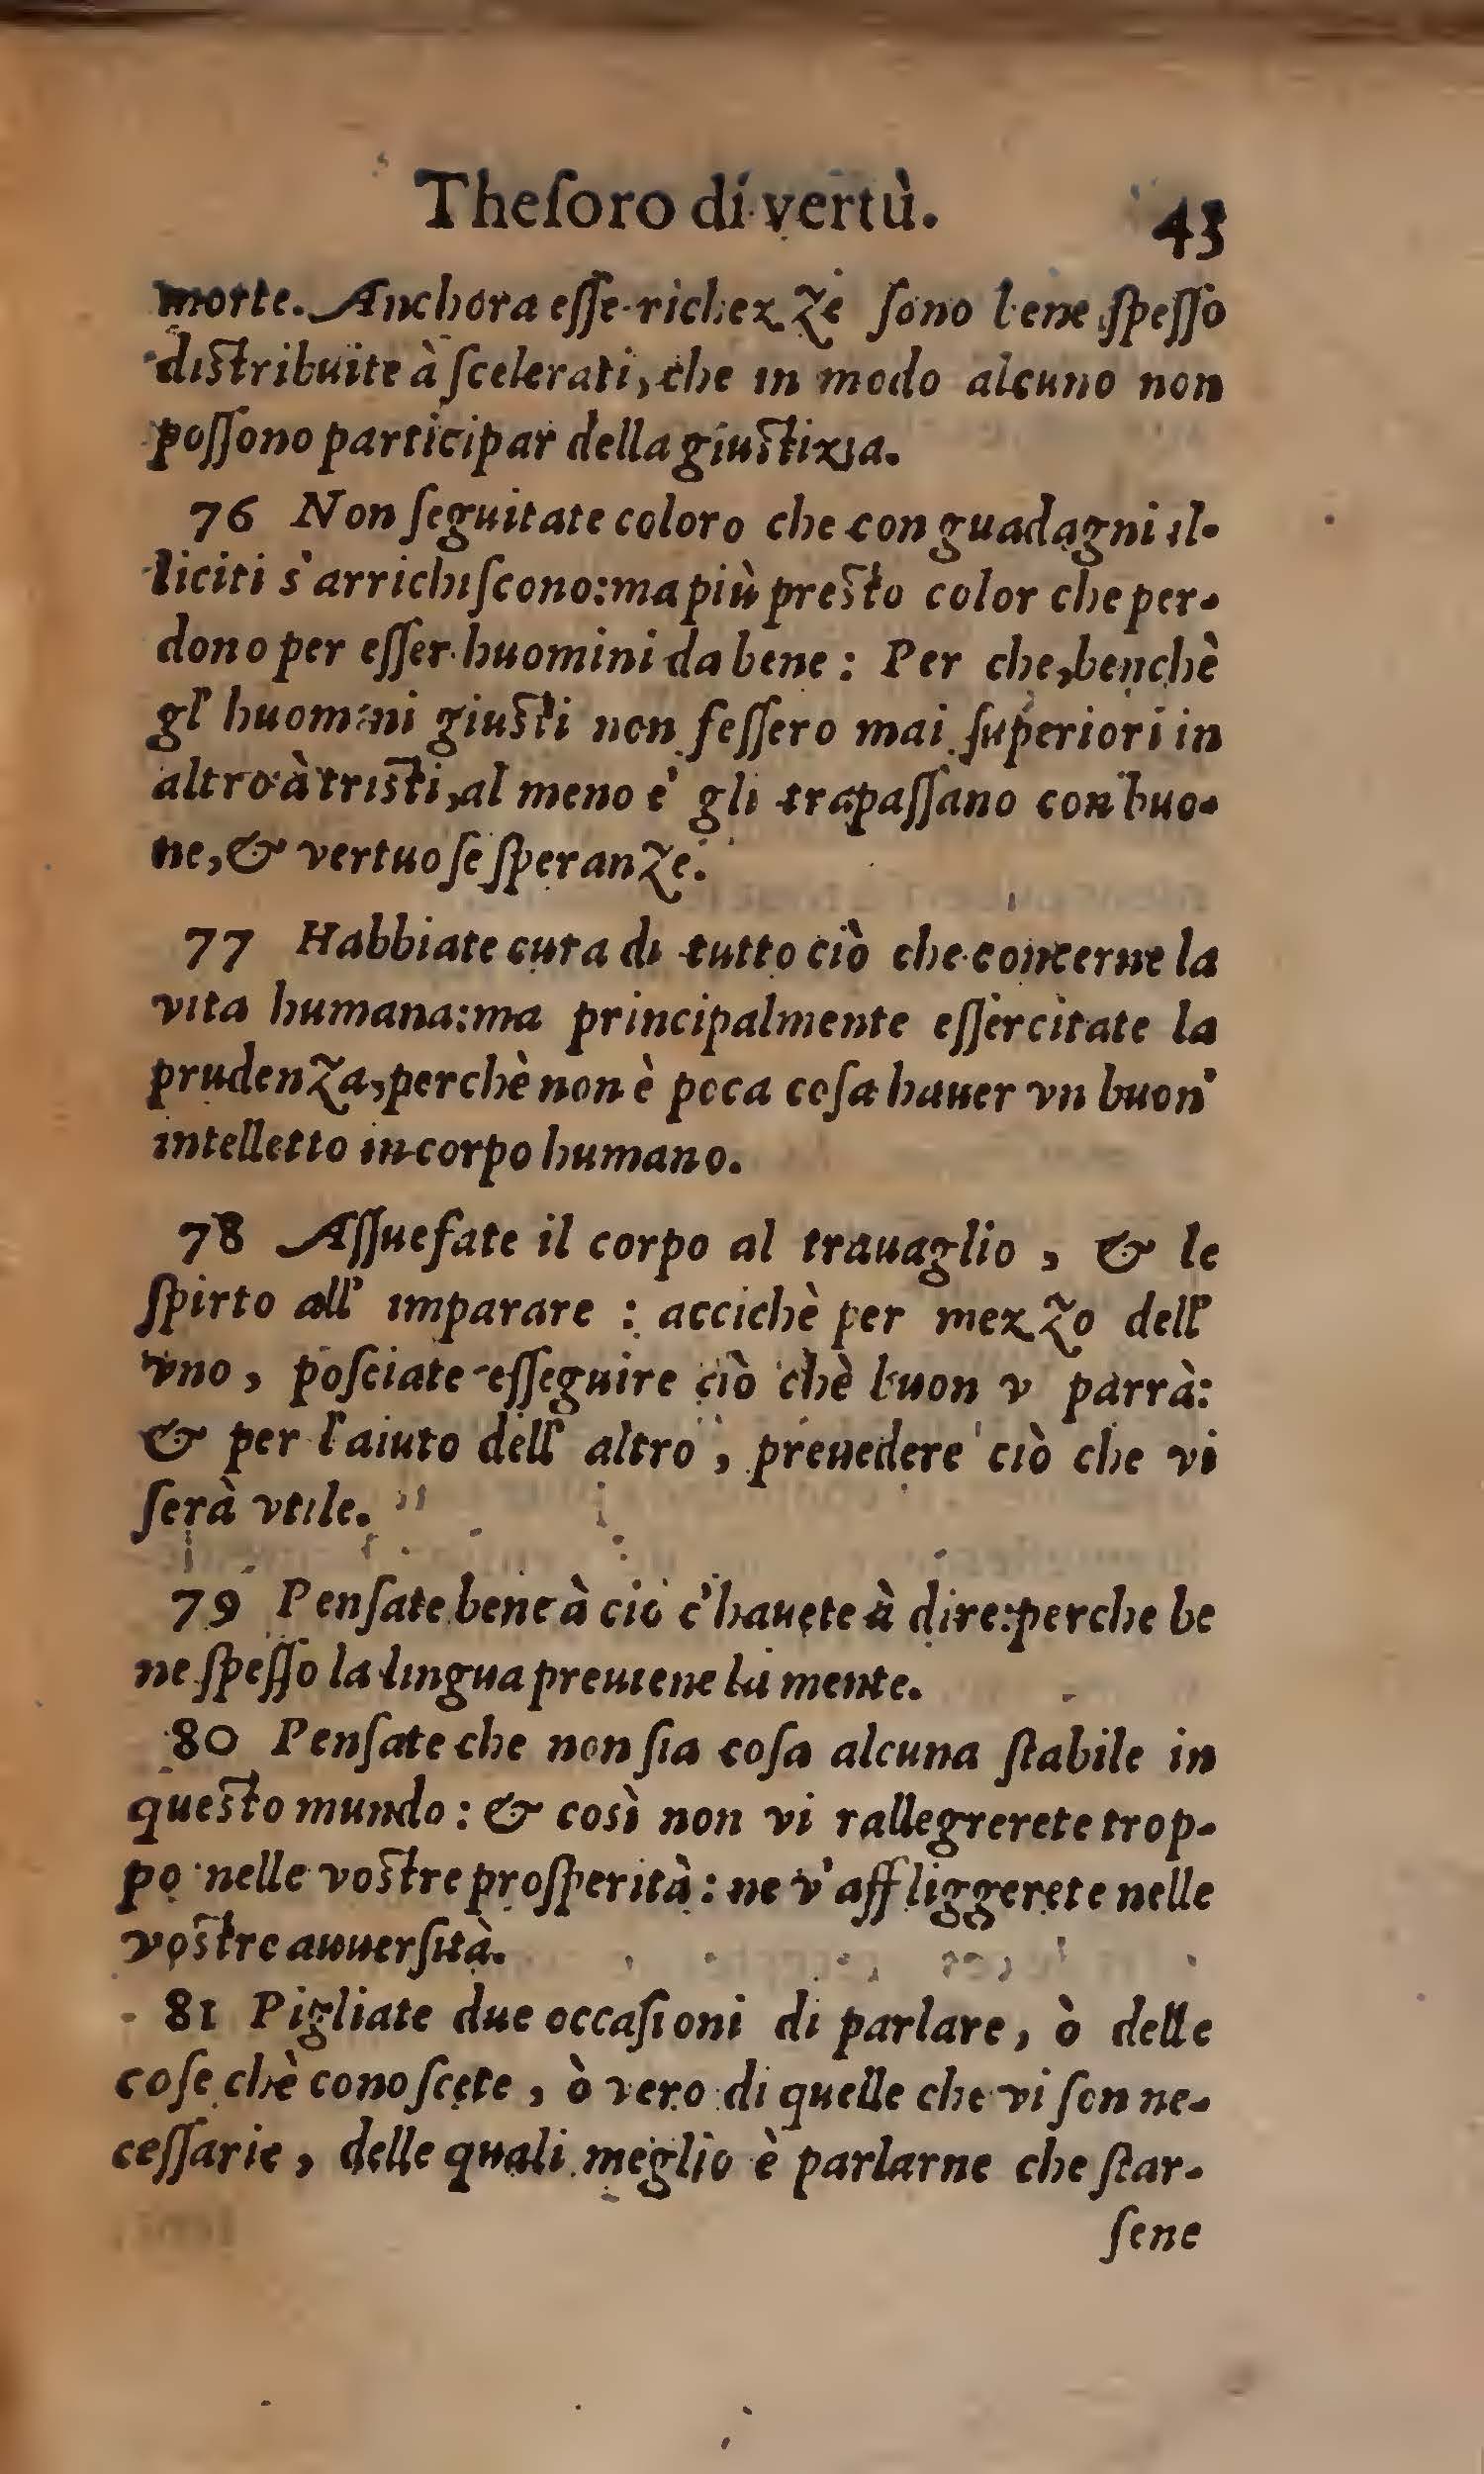 Theſoro di vertù. 43
morte. Anchora eſſe richezze ſono bene ſpeſſo
distribuite à ſcelerati, che in modo alcuno non
poſſono participar della giustizia.
76 Non ſeguitate coloro che con guadagni il-
liciti s'arrichiſcono: ma più presto color che per-
dono per eſſer huomini da bene: Per che, benchè
gl' huomini giusti non feſſero mai ſuperiori in
altro à tristi, al meno e' gli trapaſſano con buo-
ne, & vertuoſe ſperanze.
77 Habbiate cura di tutto ciò che concerne la
vita humana: ma principalmente eſſercitate la
prudenza, perchè non è poca coſa hauer vn buon'
intelletto in corpo humano.
78 Aſſuefate il corpo al trauaglio, & le
ſpirto all' imparare: accichè per mezzo dell'
vno, poſciate eſſeguire ciò chè buon v parrà:
& per l'aiuto dell' altro, preuedere ciò che vi
ſerà vtile.
79 Penſate bene à ciò c'hauete à dire: perche be
ne ſpeſſo la lingua preuiene la mente.
80 Penſate che non ſia coſa alcuna ſtabile in
questo mundo: & così non vi rallegrerete trop-
po nelle vostre proſperità: ne v'affliggerete nelle
vostre auuerſità.
81 Pigliate due occaſioni di parlare, ò delle
coſe chè conoſcete, ò vero di quelle che vi ſon ne-
ceſſarie, delle quali meglio è parlarne che ſtar-
ſene